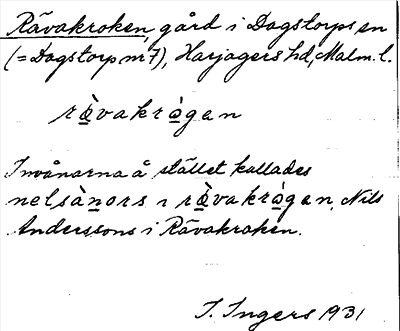 Rävakroken, gård i Dagstorps sn
(= Dagstorp nr 7), Harjagers hd, Malm. l.
rø̀vakrò̱gan
Invånarna å stället kallades
nelsàno̱rs ı rø̀vakrò̱gan, Nils
Anderssons i Rävakroken.
I. Ingers 1931